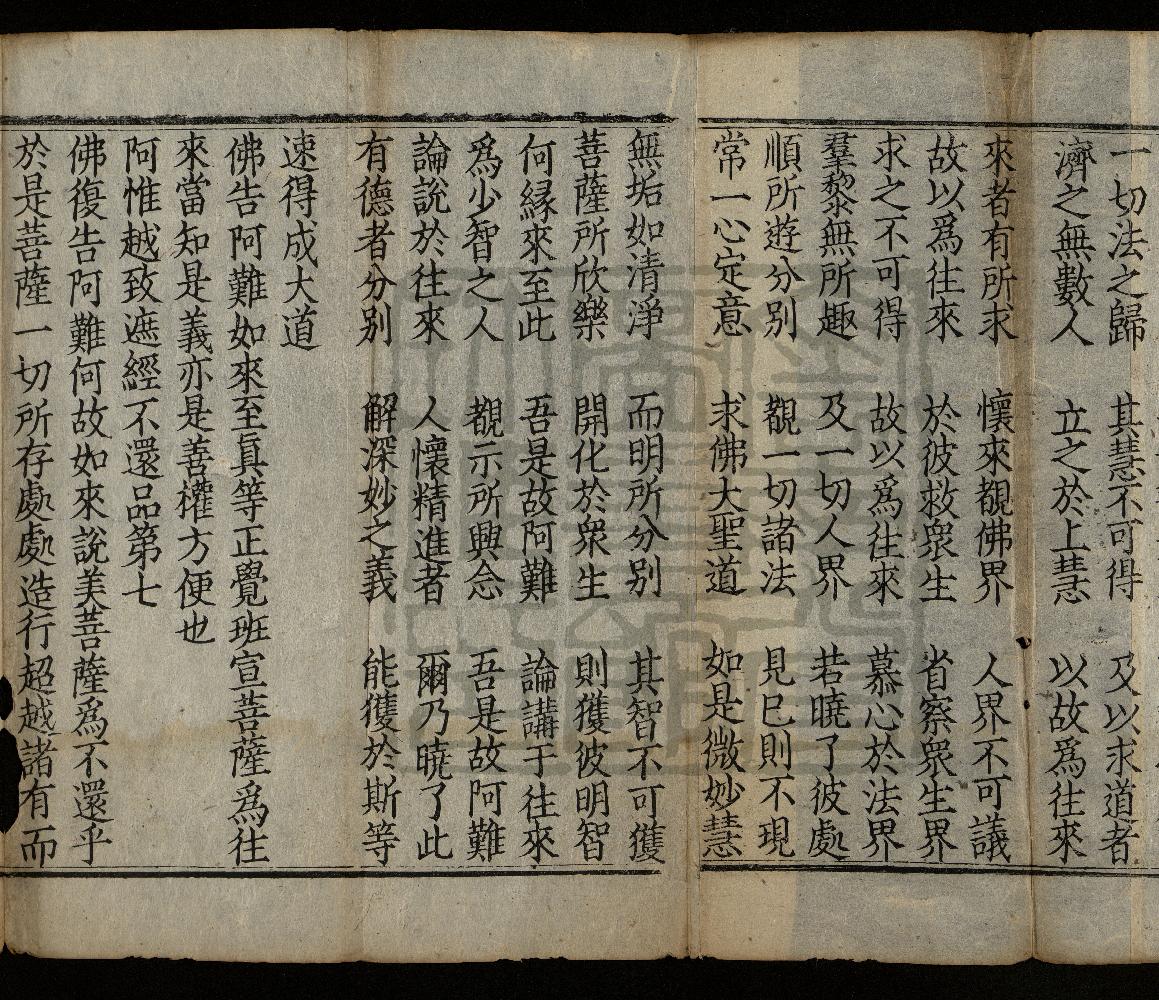 一切法之歸　其慧不可得　及以求道者
濟之無數人　立之於上慧　以故爲往來
來者有所求　懷來覩佛界　人界不可議
故以爲往來　於彼救衆生　省察衆生界
求之不可得　故以爲往來　慕心於法界
羣黎無所趣　及一切人界　若曉了彼處
順所遊分别　觀一切諸法　見已則不現
常一心定意　求佛大聖道　如是微妙慧
無垢如清淨　而明所分别　其智不可獲
菩薩所欣樂　開化於衆生　則獲彼明智
何緣來至此　吾是故阿難　論講于往來
爲少智之人　覩示所興念　吾是故阿難
論說於往來　人懷精進者　爾乃曉了此
有德者分别　解深妙之義　能獲於斯等
速得成大道
佛告阿難如來至眞等正覺班宣菩薩爲往
來當知是義亦是善權方便也
阿惟越致遮經不還品第七
佛復告阿難何故如來說美菩薩爲不還乎
於是菩薩一切所存處處造行超越諸有而